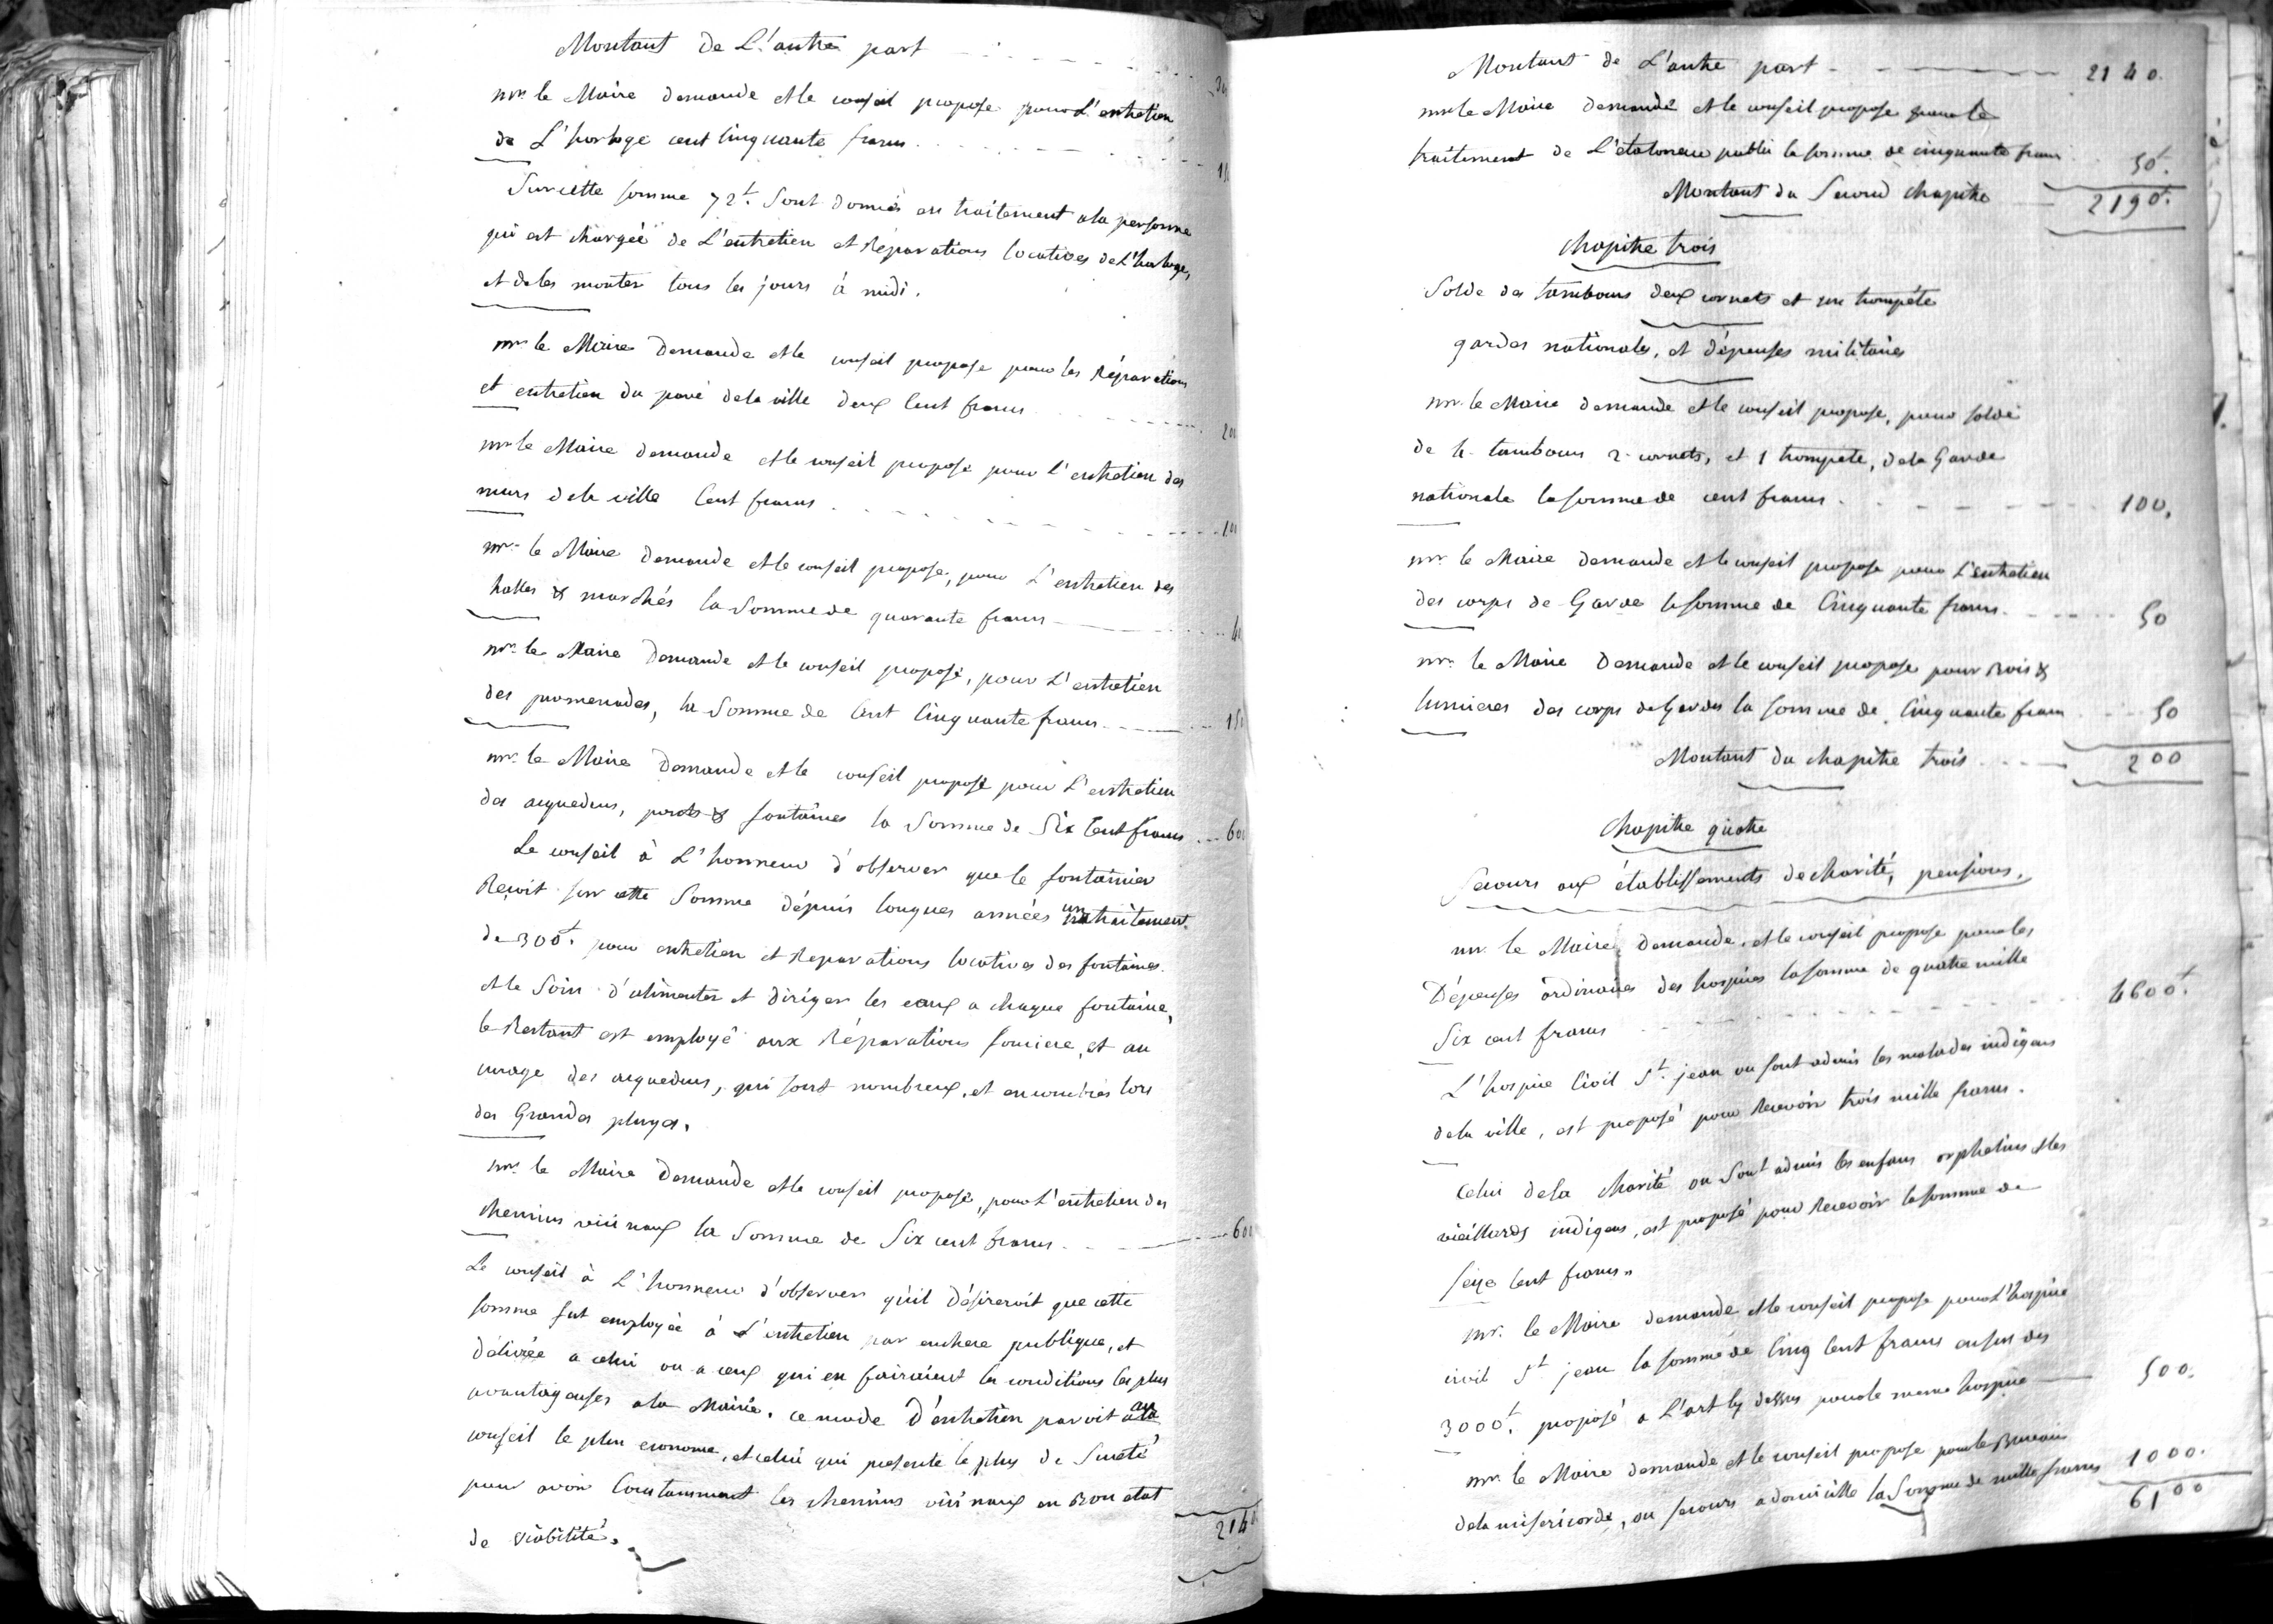 Montant de L'autre part
mr. le Maire demande et le conseil propose pour L'entretien
de L'horloge cent cinquante francs
Sur cette somme 72f. Sont donnés en traitement a la personne
qui est chargée de L'entretien et Réparations locatives de L'horloge,
et de les monter tous les jours à midi.
mr. le Maire demande et le conseil propose pour les Réparations
et entretien du pavé de la ville deux Cent francs 200
mr. le Maire demande et le conseil propose pour l'entretien des
murs de la ville Cent francs 100
mr. le Maire demande et le conseil propose, pour L'entretien des
halles & marchés la Somme de quarante francs 40
mr. le Maire demande et le conseil propose, pour L'entretien
des promenades, la Somme de Cent Cinquante francs 150
mr. le Maire demande et le conseil propose pour L'entretien
des aqueducs, ponts & fontaines la Somme de Six Cent francs 600
Le conseil à L'honneur d'observer que le fontainier
Reçoit sur cette Somme dépuis longues années un traitement
de 300f. pour entretien et Reparations locatives des fontaines
et le Soin d'alimenter et diriger les eaux a chaque fontaine,
le Restant est employé aux Réparations fonciere, et au
curage des aqueducs, qui sont nombreux, et encombrés lors
des Grandes pluyes.
mr. le Maire demande et le conseil propose, pour L'entretien des
chemins vicinaux la Somme de Six cent francs 600
Le conseil à L'honneur d'observer qu'il désireroit que cette
somme fut employée à L'entretien par enchere publique, et
délivrée a celui ou a ceux qui en fairaient les conditions les plus
avantageuses a la Mairie. ce mode d'entretien paroit au
conseil le plus econome, et celui qui presente le plus de Sureté
pour avoir Constamment les chemins vicinaux en Bon etat
de viabilité. 2140
Montant de L'autre part 2140.
mr le Maire demande et le conseil propose pour le
traitement de L'etaloneur public la somme de cinquante francs 50f.
Montant du Second chapitre 2190f.
chapitre trois
Solde des tambours deux cornets et un trompéte
gardes nationales, et dépenses militaires
mr. le Maire demande et le conseil propose, pour solde
de 4 tambours 2 cornets, et 1 trompete, de la Garde
nationale la somme de cent francs 100.
mr. le Maire demande et le conseil propose pour L'entretien
des corps de Garde la somme de Cinquante francs 50
mr. le Maire demande et le conseil propose pour Bois &
lumieres des corps de Gardes la somme de Cinquante francs 50
Montant du chapitre trois 200
Chapitre quatre
Secours aux établissements de charité, pensions.
mr. le Maire demande, et le conseil propose pour les
Dépenses ordinaires des hospices la somme de quatre mille
Six cent francs 4600f.
L'hospice Civil St. jean ou sont admis les malades indigens
de la ville, est proposé pour Recevoir trois mille francs.
Celui de la charité ou Sont admis les enfans orphelins et les
vieillards indigens, est proposé pour Recevoir la somme de
seize Cent francs.
mr. le Maire demande et le conseil propose pour L'hospice
civil St jean la somme de Cinq Cent francs en sus des
3000f. proposé a L'art cy dessus pour le meme hospice 500.
mr. le Maire demande et le conseil propose pour le Bureau
de la misericorde, ou secours a domicille la Somme de mille francs 1000.
6100